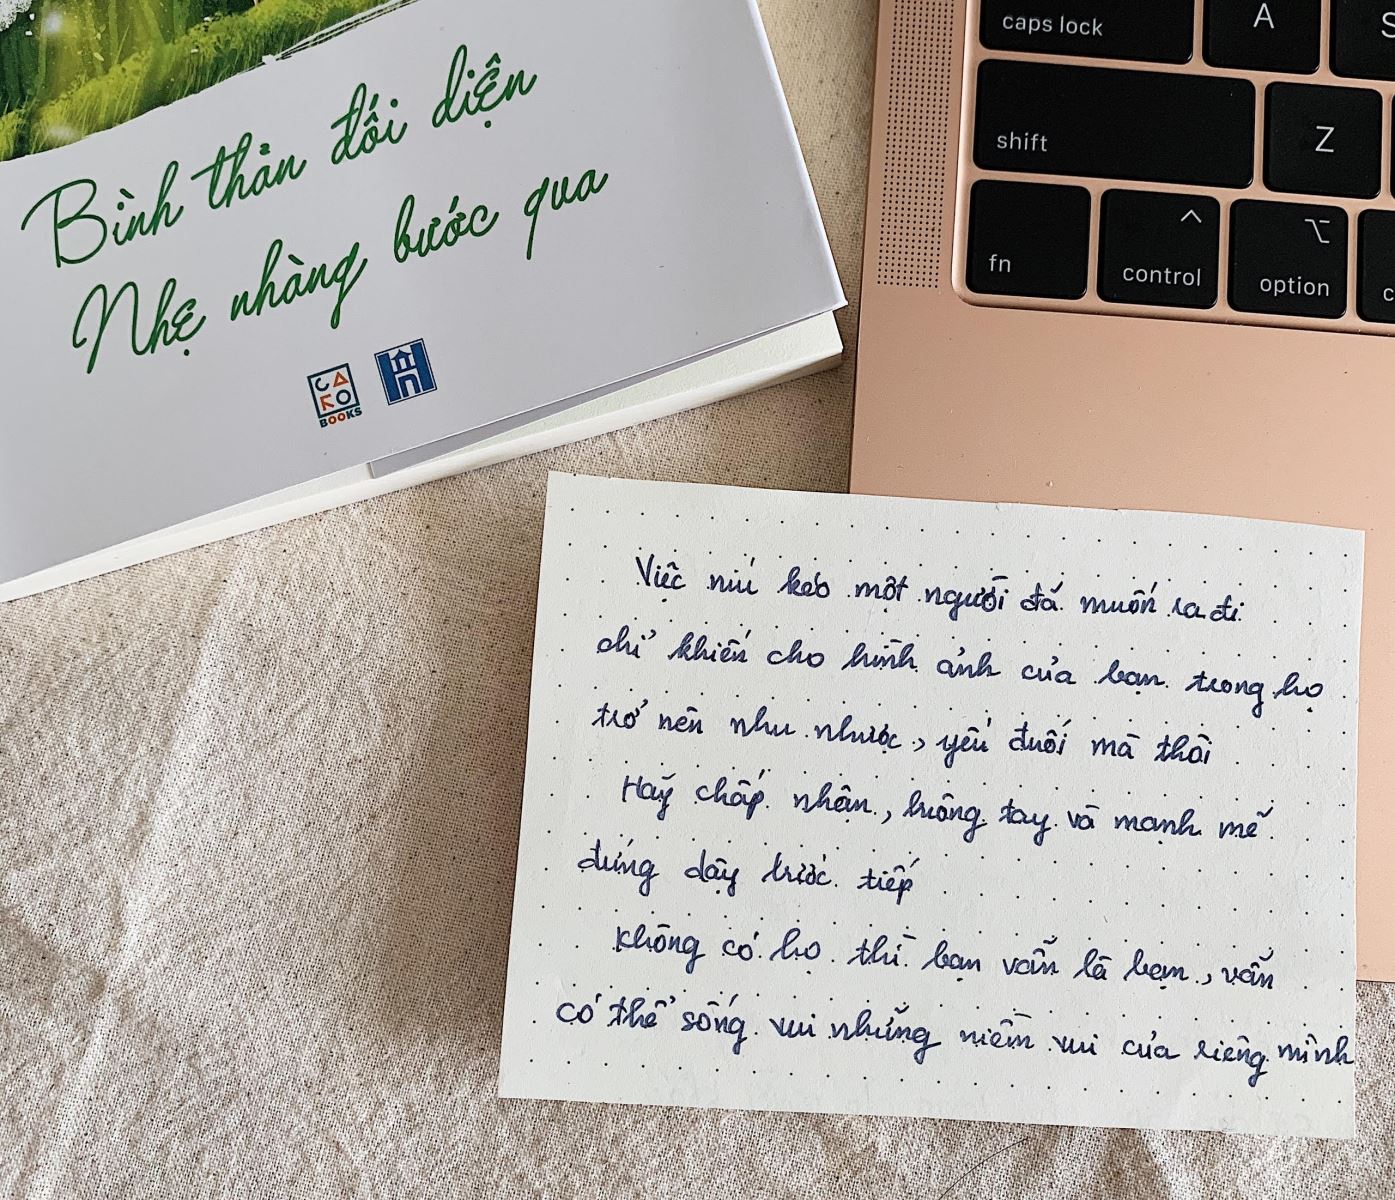 Bình thản đối diện
Nhẹ nhàng bước qua
CARO
BOOKS
caps lock
A
S
shift
Z
fn
control
option
c
Việc níu kéo một người đã muốn ra đi
chỉ khiến cho hình ảnh của bạn trong họ
trở nên nhu nhược, yếu đuối mà thôi
Hãy chấp nhận, buông tay và mạnh mẽ
đứng dậy bước tiếp
Không có họ thì bạn vẫn là bạn, vẫn
có thể sống vui những niềm vui của riêng mình